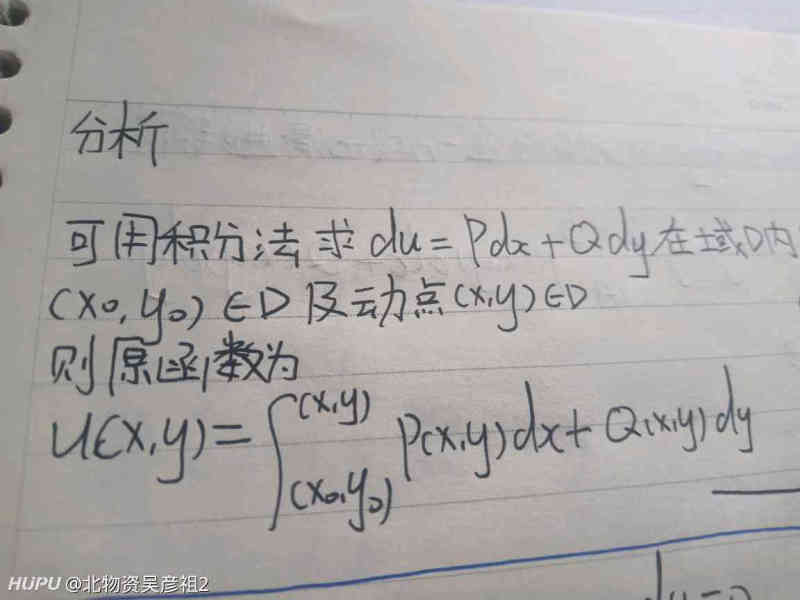 分析
可用积分法求du=Pdx+Qdy在域D内
(x₀,y₀)∈D及动点(x,y)∈D
则原函数为
u(x,y)=∫_{(x₀,y₀)}^{(x,y)} P(x,y)dx+Q(x,y)dy
HUPU @北物资吴彦祖2